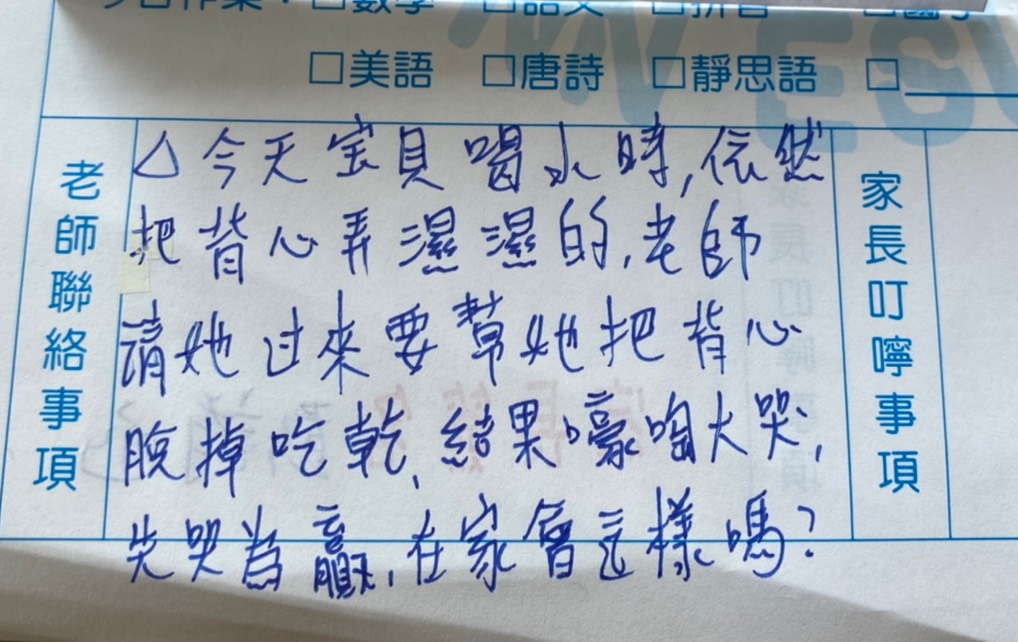 作業：□數學 □語文 □拼音
□美語 □唐詩 □靜思語 □
老師聯絡事項
△今天宝貝喝水時,依然
把背心弄濕濕的,老師
請她过來要幫她把背心
脫掉吃乾,結果嚎啕大哭,
先哭為贏,在家會这樣嗎?
家長叮嚀事項